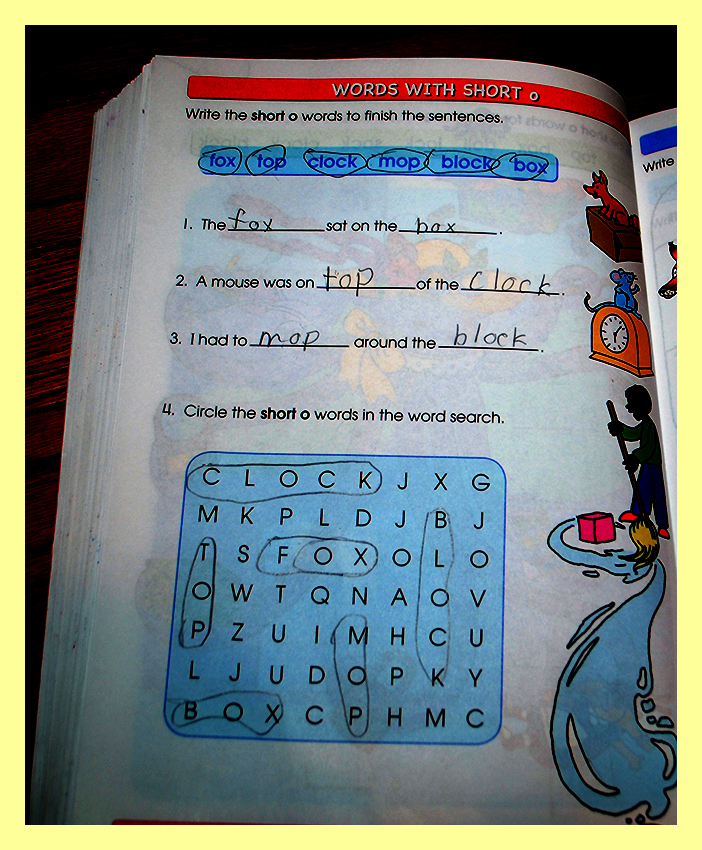 WORDS WITH SHORT o
Write the short o words to finish the sentences.
fox top clock mop block box
1. The fox sat on the box.
2. A mouse was on top of the clock.
3. I had to mop around the block.
4. Circle the short o words in the word search.
C L O C K J X G
M K P L D J B J
T S F O X O L O
O W T Q N A O V
P Z U I M H C U
L J U D O P K Y
B O X C P H M C
Write